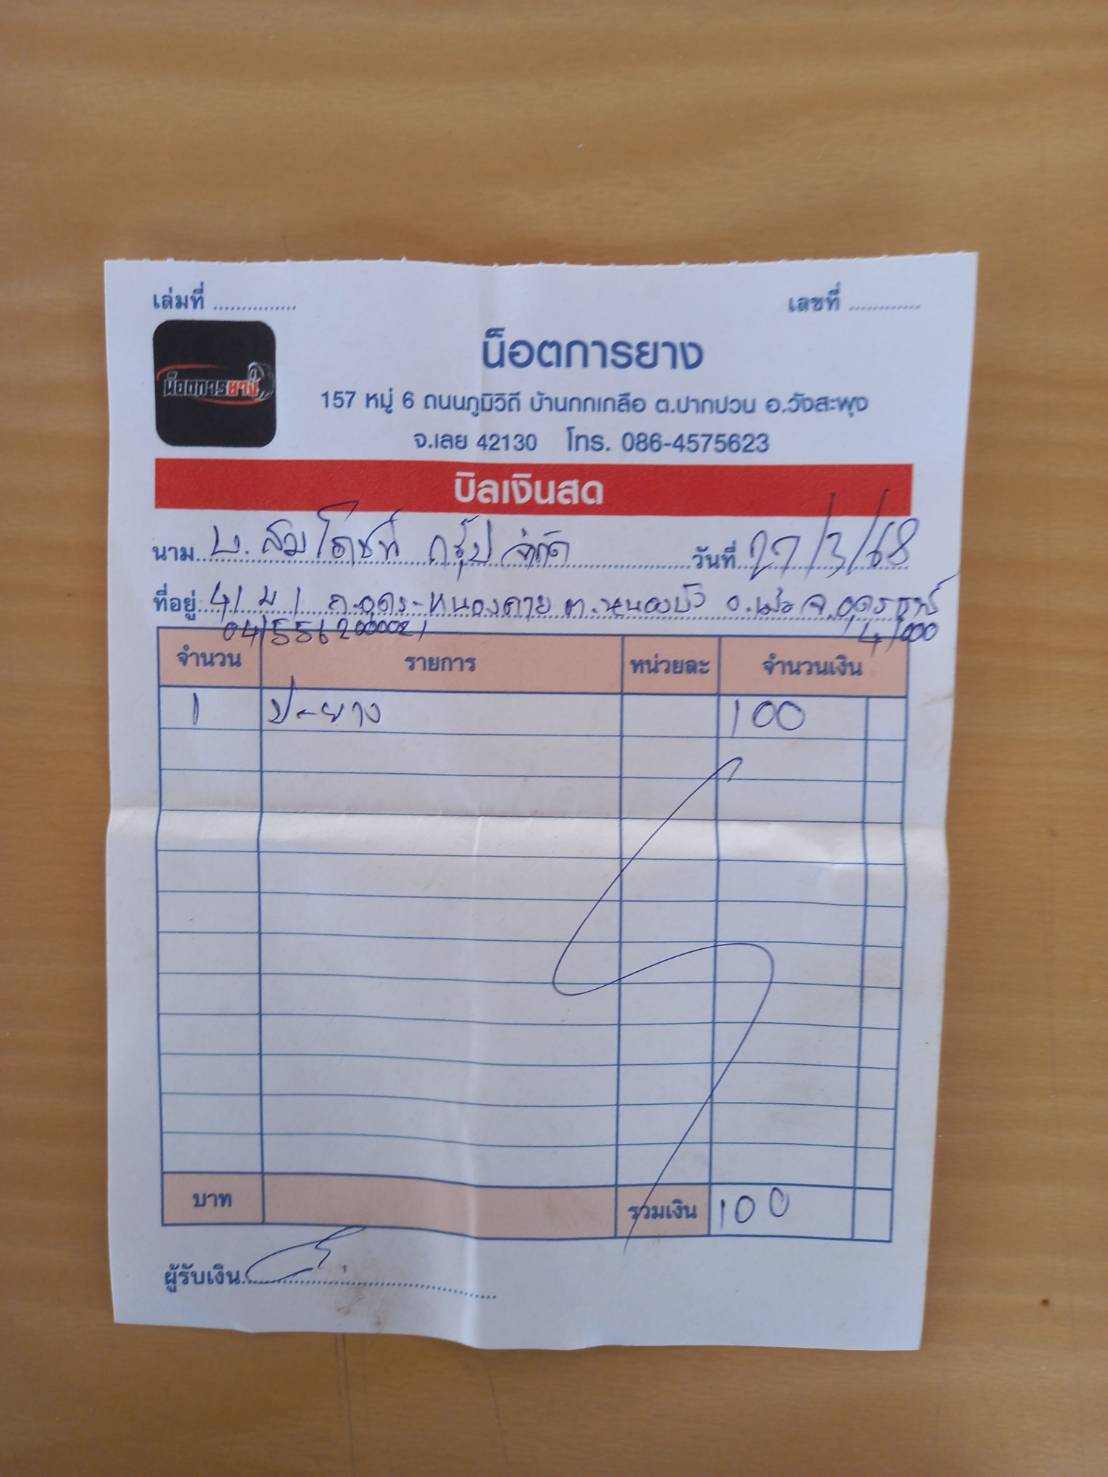 เล่มที่ ............... เลขที่ ............
น็อตการยาง
น็อตการยาง
157 หมู่ 6 ถนนภูมิวิถี บ้านกกเกลือ ต.ปากปวน อ.วังสะพุง
จ.เลย 42130 โทร. 086-4575623
บิลเงินสด
นาม บ. สมโภชน์ กรุ๊ป จำกัด วันที่ 27/3/68
ที่อยู่ 41 ม 1 ถ.อุดร-หนองคาย ต.หนองบัว อ.เมือง จ.อุดรธานี
41000
จำนวน รายการ หน่วยละ จำนวนเงิน
1 ปะยาง 100
บาท รวมเงิน 100
ผู้รับเงิน